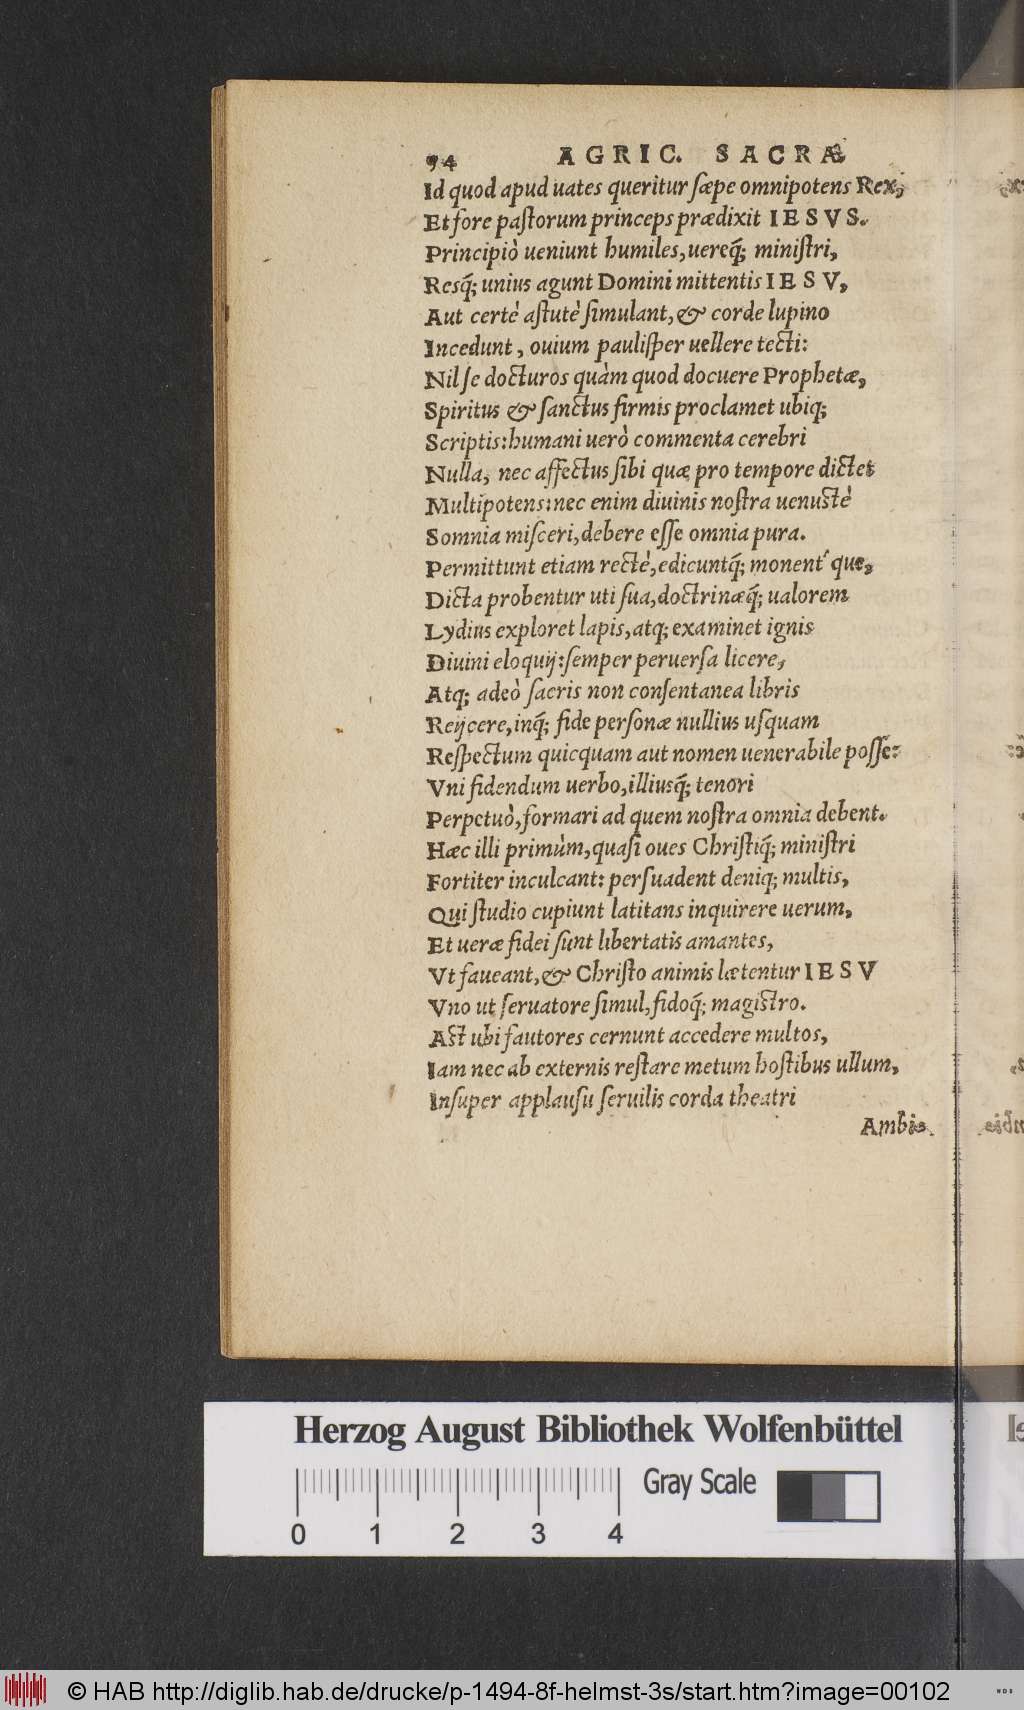 94 AGRIC. SACRÆ
Id quod apud uates queritur sæpe omnipotens Rex,
Et fore paſtorum princeps prædixit IESVS.
Principiò ueniunt humiles, uereq́; miniſtri,
Resq́; unius agunt Domini mittentis IESV,
Aut certè aſtutè ſimulant, & corde lupino
Incedunt, ouium pauliſper uellere tecti:
Nil ſe docturos quàm quod docuere Prophetæ,
Spiritus & ſanctus firmis proclamet ubiq;
Scriptis: humani uerò commenta cerebri
Nulla, nec affectus ſibi quæ pro tempore dictet
Multipotens: nec enim diuinis noſtra uenuſtè
Somnia miſceri, debere eſſe omnia pura.
Permittunt etiam rectè, edicuntq́; monent'que,
Dicta probentur uti ſua, doctrinæq́; ualorem
Lydius exploret lapis, atq; examinet ignis
Diuini eloquij: ſemper peruerſa licere,
Atq; adeò ſacris non conſentanea libris
Reijcere, inq́; fide perſonæ nullius uſquam
Reſpectum quicquam aut nomen uenerabile poſſe:
Vni fidendum uerbo, illiusq́; tenori
Perpetuò, formari ad quem noſtra omnia debent.
Hæc illi primùm, quaſi oues Chriſtiq́; miniſtri
Fortiter inculcant: perſuadent deniq; multis,
Qui ſtudio cupiunt latitans inquirere uerum,
Et ueræ fidei ſunt libertatis amantes,
Vt faueant, & Chriſto animis lætentur IESV
Vno ut ſeruatore ſimul, fidoq́; magiſtro.
Aſt ubi fautores cernunt accedere multos,
Iam nec ab externis reſtare metum hoſtibus ullum,
Inſuper applauſu ſeruilis corda theatri
Ambi
Herzog August Bibliothek Wolfenbüttel
Gray Scale
0 1 2 3 4
© HAB http://diglib.hab.de/drucke/p-1494-8f-helmst-3s/start.htm?image=00102